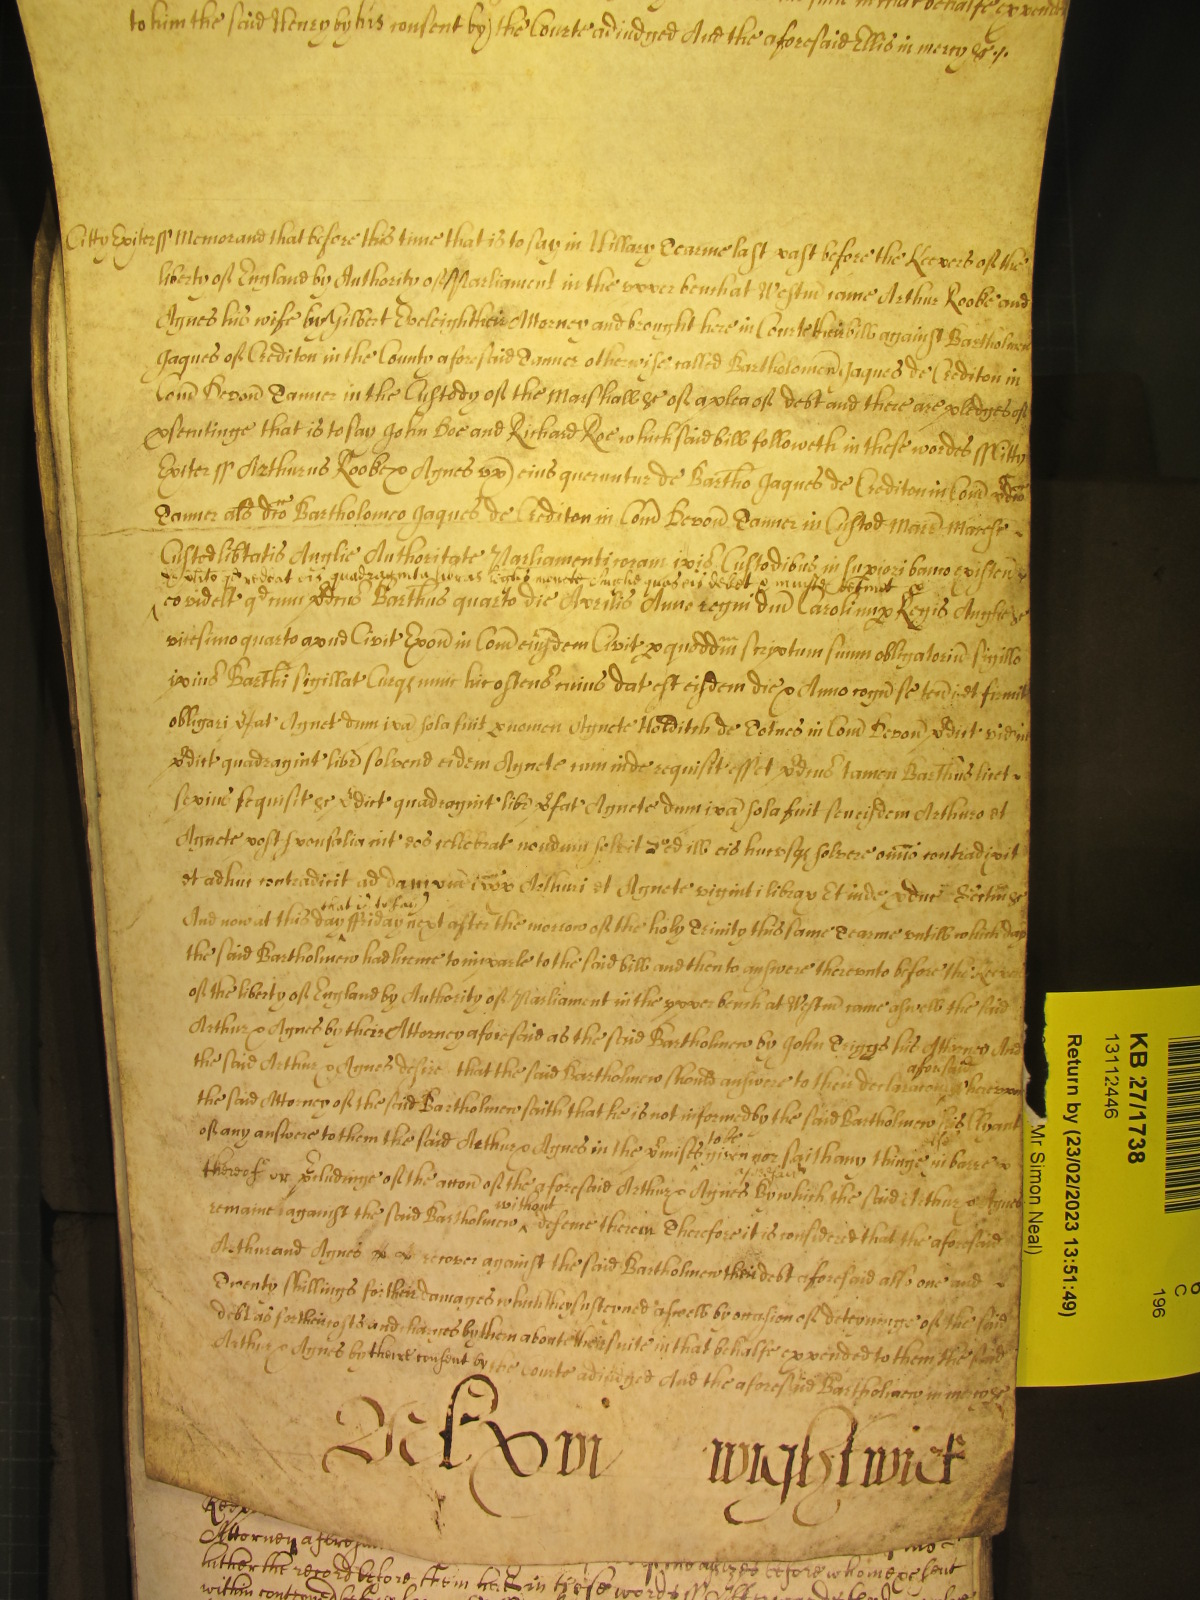 to him the said Henry by his consent by the Courte adiudged And the aforesaid Ellis in mercy &c
Citty Exiter ss Memorand that before this time that is to say in Hillary Tearme last past before the Keepers of the
liberty of England by Authority of Parliament in the upper bench at Westm came Arthur Rooke and
Agnes his wife by Gilbert Eveleigh their Attorney and brought here in Courte their bill against Bartholmew
Jaques of Crediton in the County aforesaid Tanner otherwise called Bartholomew Jaques de Crediton in
Com Devon Tanner in the Custody of the Marshall &c of a plea of debt and there are pledges of
psecutinge that is to say John Doe and Richard Roe which said bill followeth in these wordes ss Citty
Exiter ss Arthurus Rooke & Agnes ux eius queruntur de Bartho Jaques de Crediton in Com
Tanner als dco Bartholomeo Jaques de Crediton in Com Devon Tanner in Custod Marr Maresc
Custod libtatis Anglie Authoritate Parliamenti coram ipis Custodibus in supiori banco existen
qd reddat eis quadraginta libras legalis monete Anglie quas eis debet & iniuste detinet
eo videlt qd cum pdcus Barthus quarto die Aprilis Anno regni dni Caroli nup Regis Anglie &c
vicesimo quarto apud Civit Exon in Com eiusdem Civit p quoddam scriptum suum obligatoriu sigillo
ipius Barthi sigillat Curq nunc hic ostens cuius dat est eisdem die & Anno cogn se teneri et firmit
obligari pfat Agnet dum ipa sola fuit p nomen Agnete Holditch de Totnes in Com Devon pdict vid in
pdict quadragint libr solvend eidem Agnete cum inde requisit esset pdcus tamen Barthus licet
sepius requisit &c pdict quadragint libr pfat Agnete dum ipa sola fuit seu eisdem Arthuro et
Agnete post sponsalia int eos celebrat nondum solvit sed ill eis hucusq solvere omnio contradixit
et adhuc contradicit ad dampnu ipor Arthuri et Agnete viginti librar Et inde pduc sectam &c
that is to say
And now at this day ffriday next after the morrow of the holy Trinity this same Tearme untill which day
the said Bartholmew had licence to imparle to the said bill and then to answere thereunto before the Keepers
of the liberty of England by Authority of Parliament in the upper bench at Westm came aswell the said
Arthur & Agnes by their Attorney aforesaid as the said Bartholmew by John Triggs his Attorney And
aforesaid
the said Arthur & Agnes desire that the said Bartholmew should answere to their declaracon whereupon
the said Attorney of the said Bartholmew saith that he is not informed by the said Bartholmew his Clyant
to be else
of any answere to them the said Arthur & Agnes in the pmisses given nor saith any thinge in barre
aforesaid
thereof or pcludinge of the accon of the aforesaid Arthur & Agnes By which the said Arthur & Agnes
without
remaine against the said Bartholmew defence therein Therefore it is considered that the aforesaid
Arthur and Agnes recover against the said Bartholmew their debt aforesaid also one and
Twenty shillings for their damages which they susteyned aswell by occasion of deteyninge of the said
debt as for their costs and charges by them aboute their suite in that behalfe expended to them the said
Arthur & Agnes by there consent by the courte adiudged And the aforesaid Bartholmew in mercy &c
wightwick
Attorney afore
KB 27/1738
13112446
Return by (23/02/2023 13:51:49)
Mr Simon Neal)
C
196